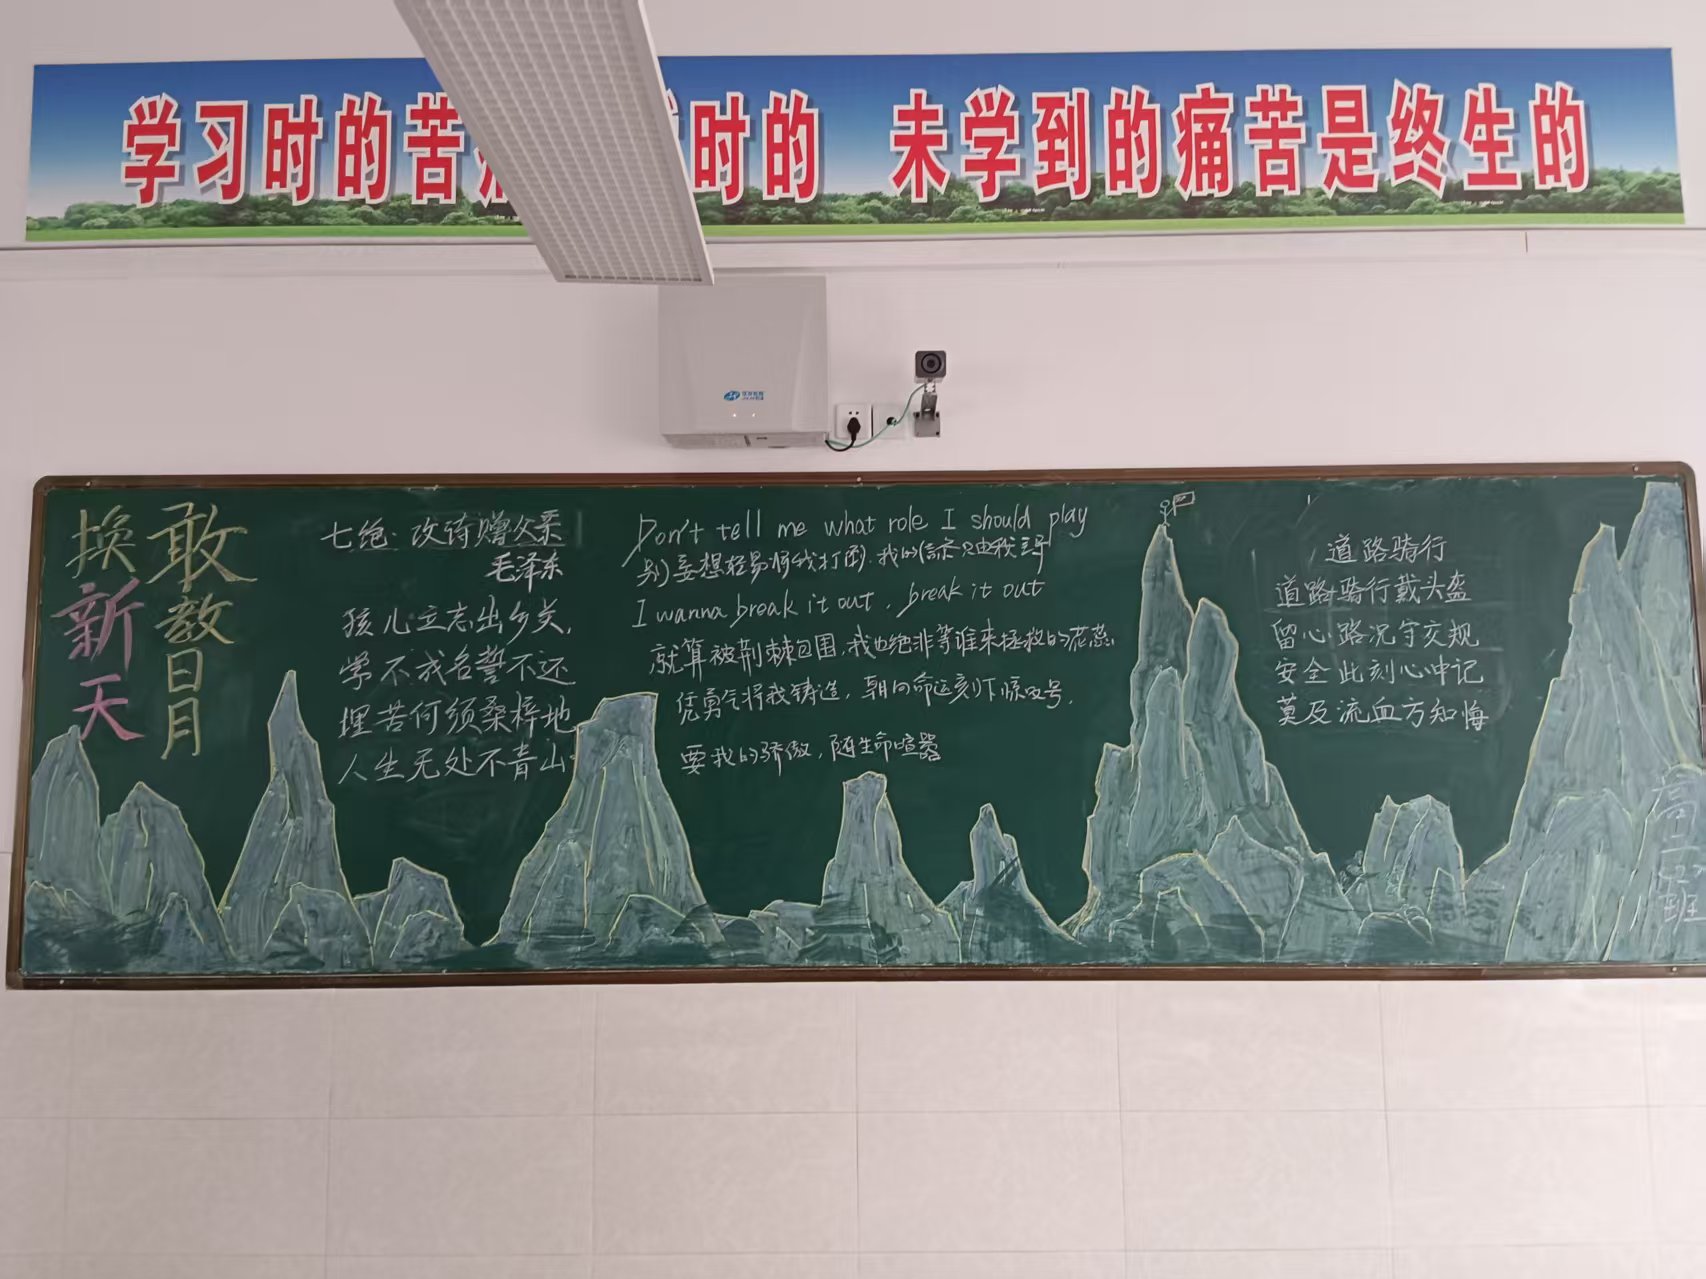 学习时的苦 时的 未学到的痛苦是终生的
敢教日月
换新天
七绝·改诗赠父亲
毛泽东
孩儿立志出乡关,
学不成名誓不还
埋苦何须桑梓地
人生无处不青山
Don't tell me what role I should play
别妄想轻易将我打倒.我的信念只由我主导
I wanna break it out, break it out
就算被荆棘包围,我也绝非等谁来拯救的花蕊
凭勇气将我铸造,朝向命运刻下惊叹号,
要我的骄傲,随生命喧嚣
道路骑行
道路骑行戴头盔
留心路况守交规
安全此刻心中记
莫及流血方知悔
高二 班